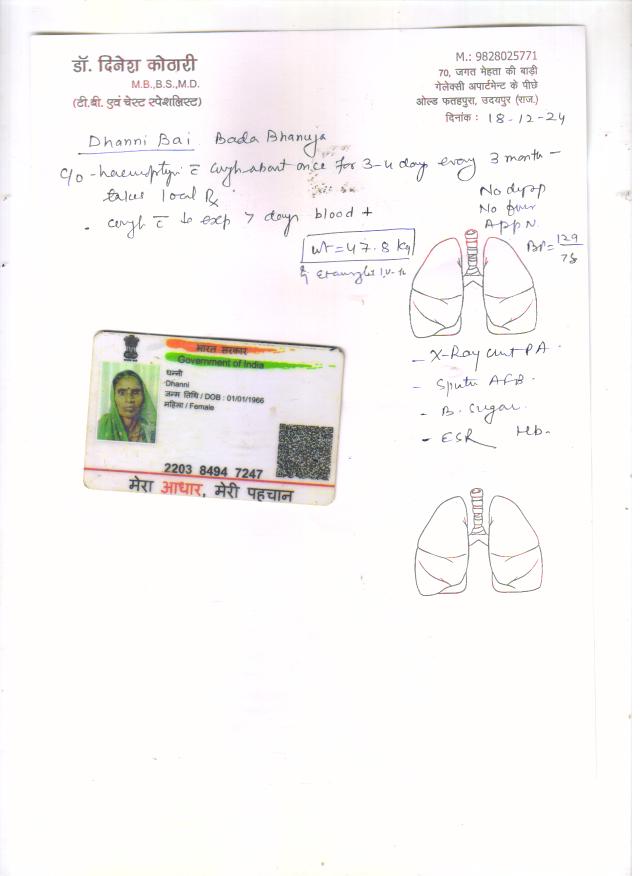 डॉ. दिनेश कोठारी
M.B.,B.S.,M.D.
(टी.बी. एवं चेस्ट स्पेशलिस्ट)
M.: 9828025771
70, जगत मेहता की बाड़ी
गेलेक्सी अपार्टमेन्ट के पीछे
ओल्ड फतहपुरा, उदयपुर (राज.)
दिनांक : 18-12-24
Dhanni Bai Bada Bhanuja
C/o - haemoptysis c̄ cough about once for 3-4 days every 3 month -
takes local Rx
No dysp
No fever
App N.
. cough c̄ exp 7 days blood +
Wt = 47.8 kg
BP = 129/78
- X-Ray chest PA
- Sputum AFB.
- B. Sugar.
- ESR Hb.
भारत सरकार
Government of India
धन्नी
Dhanni
जन्म तिथि / DOB : 01/01/1966
महिला / Female
2203 8494 7247
मेरा आधार, मेरी पहचान